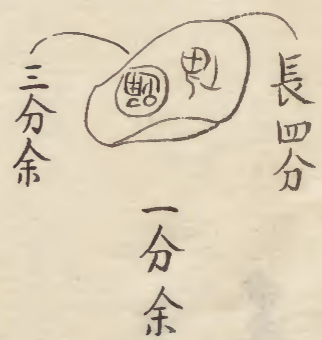 長四分
三分余
一分余